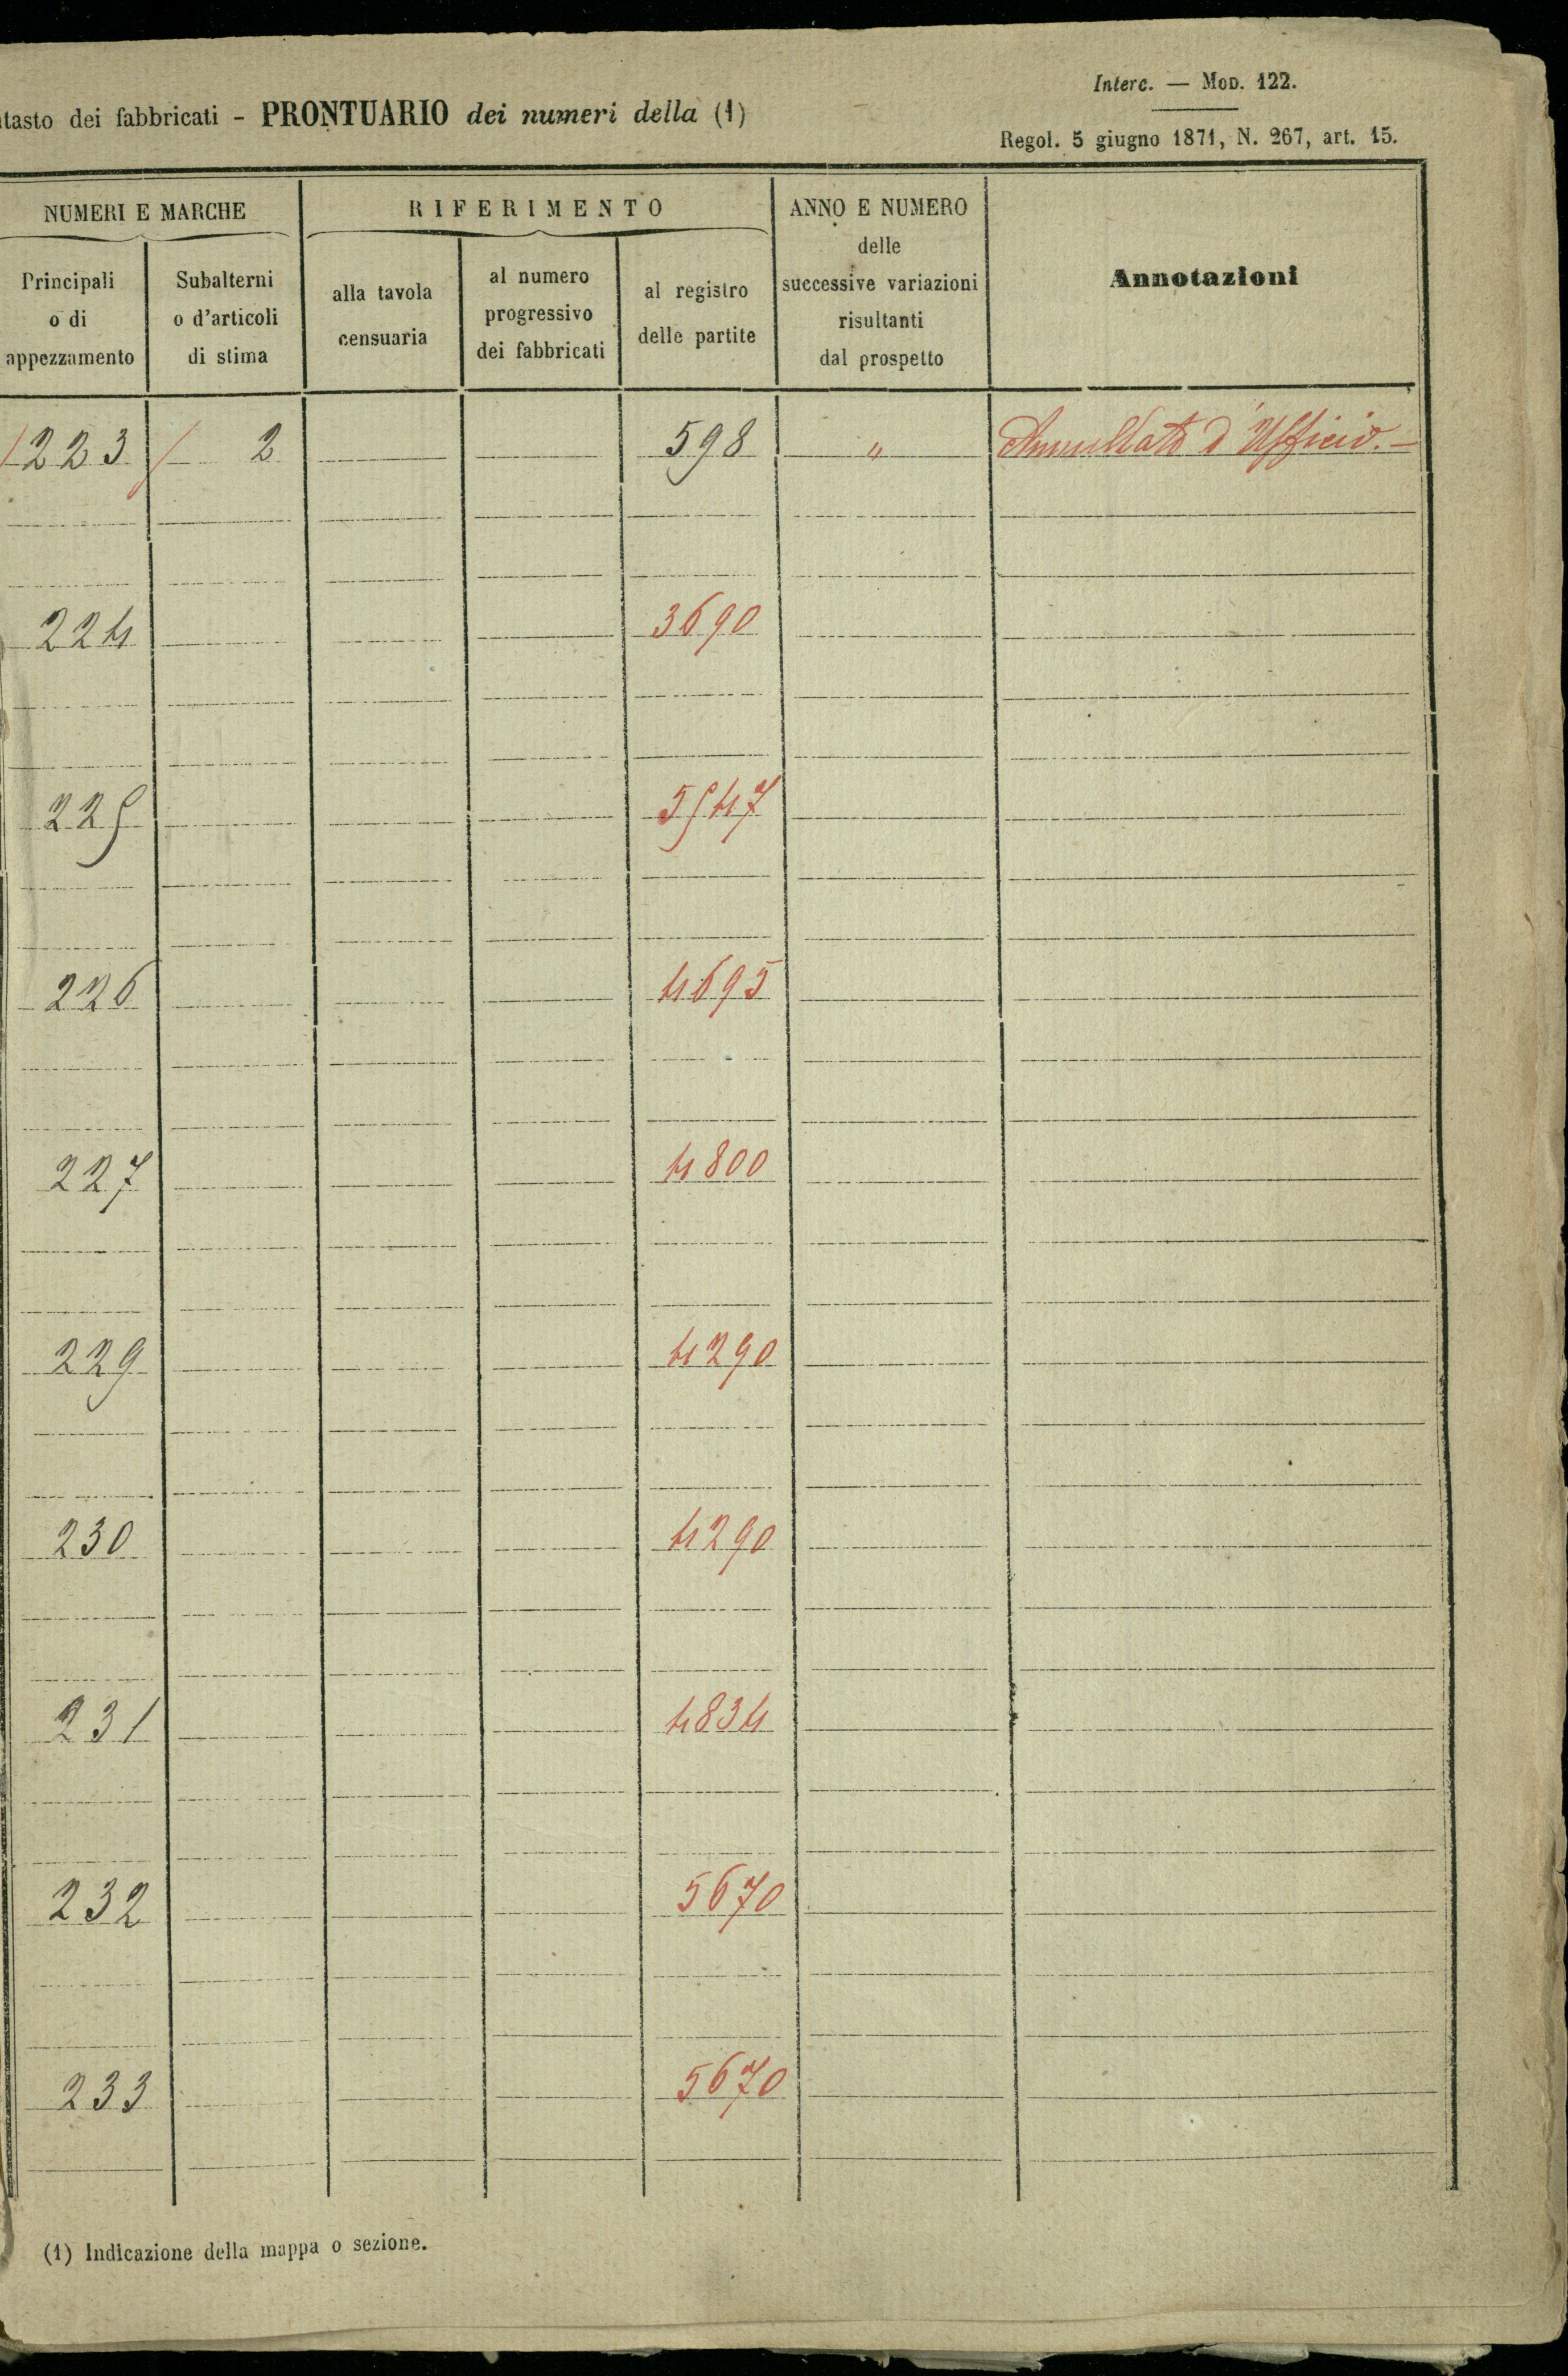 Interc. — Mod. 122.
tasto dei fabbricati - PRONTUARIO dei numeri della (1)
Regol. 5 giugno 1871, N. 267, art. 15.
NUMERI E MARCHE
RIFERIMENTO
ANNO E NUMERO
delle
successive variazioni
risultanti
dal prospetto
Annotazioni
Principali
o di
appezzamento
Subalterni
o d'articoli
di stima
alla tavola
censuaria
al numero
progressivo
dei fabbricati
al registro
delle partite
223 2 598 " Annullato d'Ufficio.—
224 3690
225 5547
226 4695
227 4800
229 4290
230 4290
231 4834
232 5670
233 5670
(1) Indicazione della mappa o sezione.